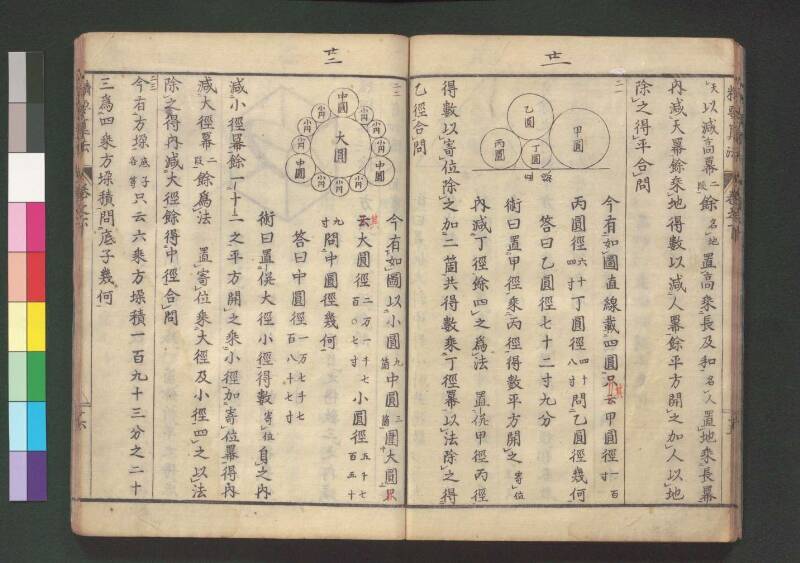 廿一
天以減高冪二段餘名地置高乘長及和名人置地乘長冪
內減天冪餘乘地得數以減人冪餘平方開之加人以地
除之得平合問
二一
甲圓
乙圓
丙圓
丁圓
今有如圖直線載四圓只云甲圓徑一百寸
丙圓徑六十四寸丁圓徑四十八寸問乙圓徑幾何
答曰乙圓徑七十二寸九分
術曰置甲徑乘丙徑得數平方開之寄位
內減丁徑餘四之為法置倍甲徑丙徑
得數以寄位除之加二箇共得數乘丁徑冪以法除之得
乙徑合問
廿二
二二
大圓
中圓
中圓
中圓
小円
小円
小円
小円
小円
小円
小円
小円
小円
今有如圖以小圓九箇中圓三箇圍大圓只
云大圓徑二万一千七百〇七寸小圓徑五千七百五十
九寸問中圓徑幾何
答曰中圓徑一万七千七百八十七寸
術曰置倍大徑小徑得數寄位自之內
減小徑冪餘一十二之平方開之乘小徑加寄位冪得內
減大徑冪二段餘為法置寄位乘大徑及小徑四之以法
除之得內減大徑餘得中徑合問
二三
今有方垛底子各等只云六乘方垛積一百九十三分之二十
三為四乘方垛積問底子幾何